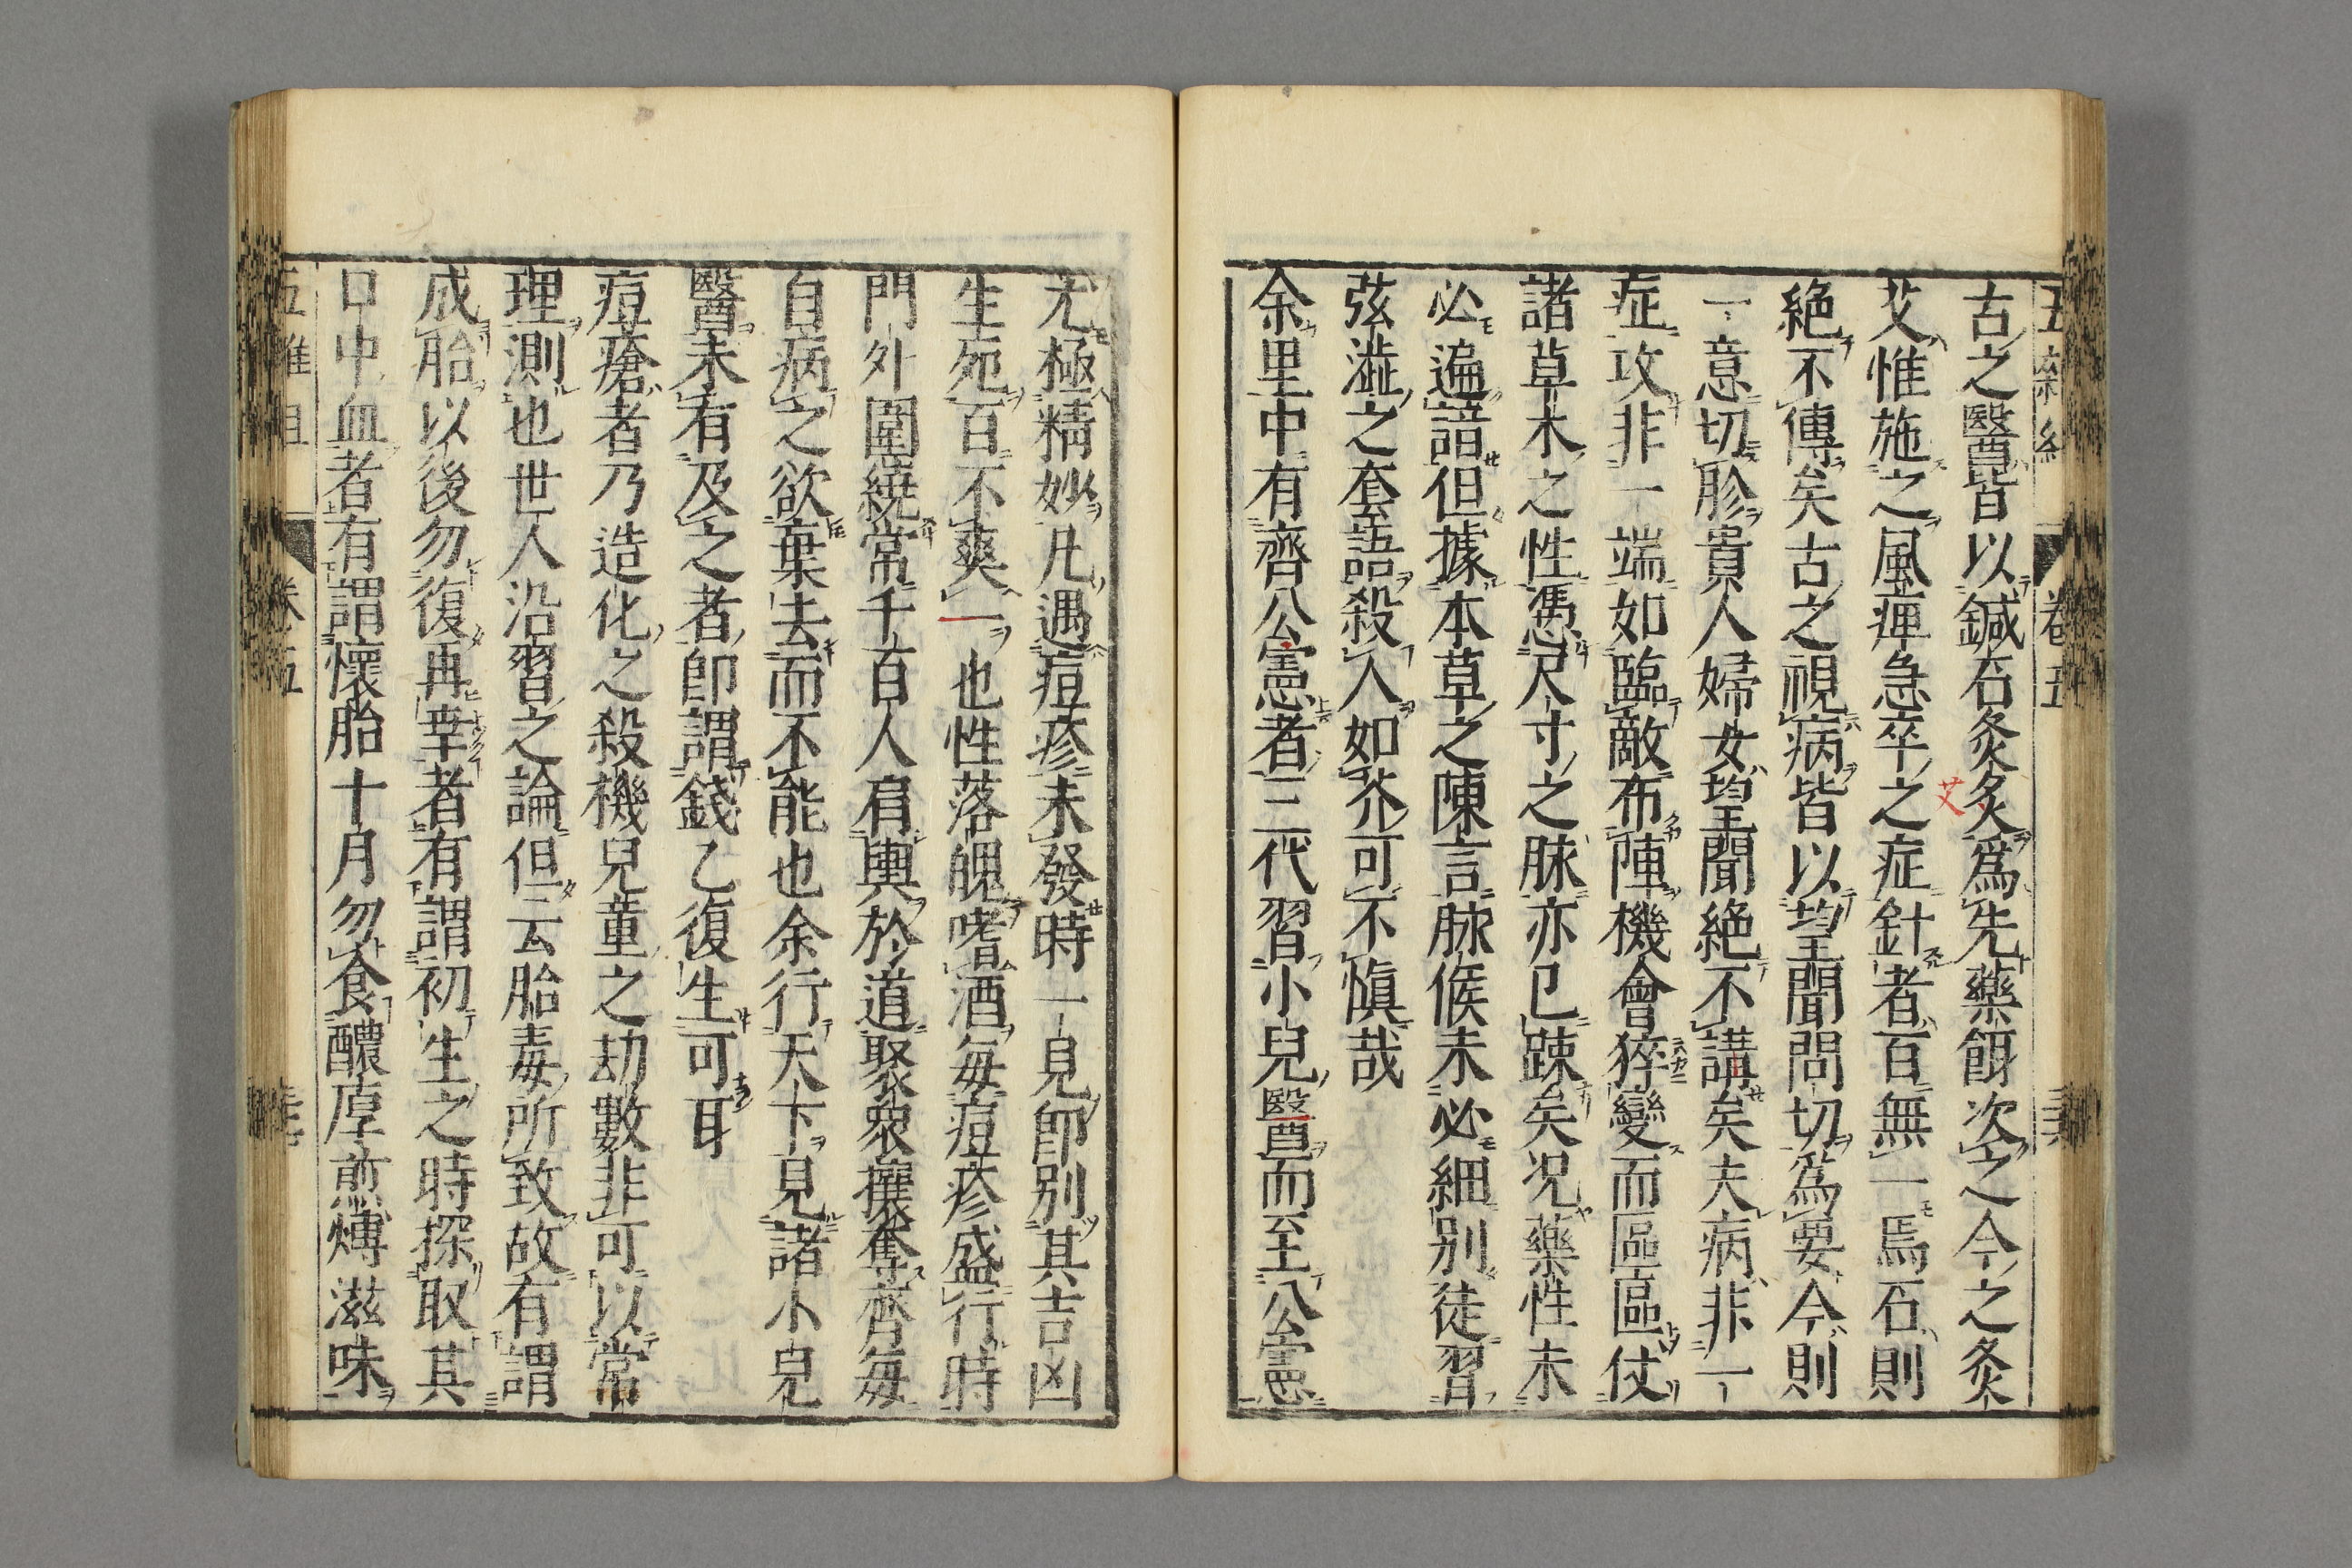 古之醫皆以鍼石灸炙爲先藥餌次之今之灸
艾
艾惟施之風痺急卒之症針者百無一焉石則
絕不傳矣古之視病皆以望聞問切爲要今則
一意切脉貴人婦女望聞絕不講矣夫病非一
症攻非一端如臨敵布陣機會猝變而區區仗
諸草木之性憑尺寸之脉亦已踈矣况藥性未
必遍諳但據本草之陳言脉候未必細别徒習
弦澁之套語殺人如芥可不愼哉
余里中有齊公憲者三代習小兒醫而至公憲
尤極精妙凡遇痘疹未發時一見卽别其吉凶
生死百不爽一也性落魄嗜酒每痘疹盛行時
門外圍繞常千百人肩輿於道聚衆攘奪齊每
自病之欲棄去而不能也余行天下見諸小兒
醫未有及之者卽謂錢乙復生可耳
痘瘡者乃造化之殺機兒童之劫數非可以常
理測也世人沿習之論但云胎毒所致故有謂
成胎以後勿復再幸者有謂初生之時探取其
口中血者有謂懷胎十月勿食醲厚煎煿滋味
五雜組 卷五